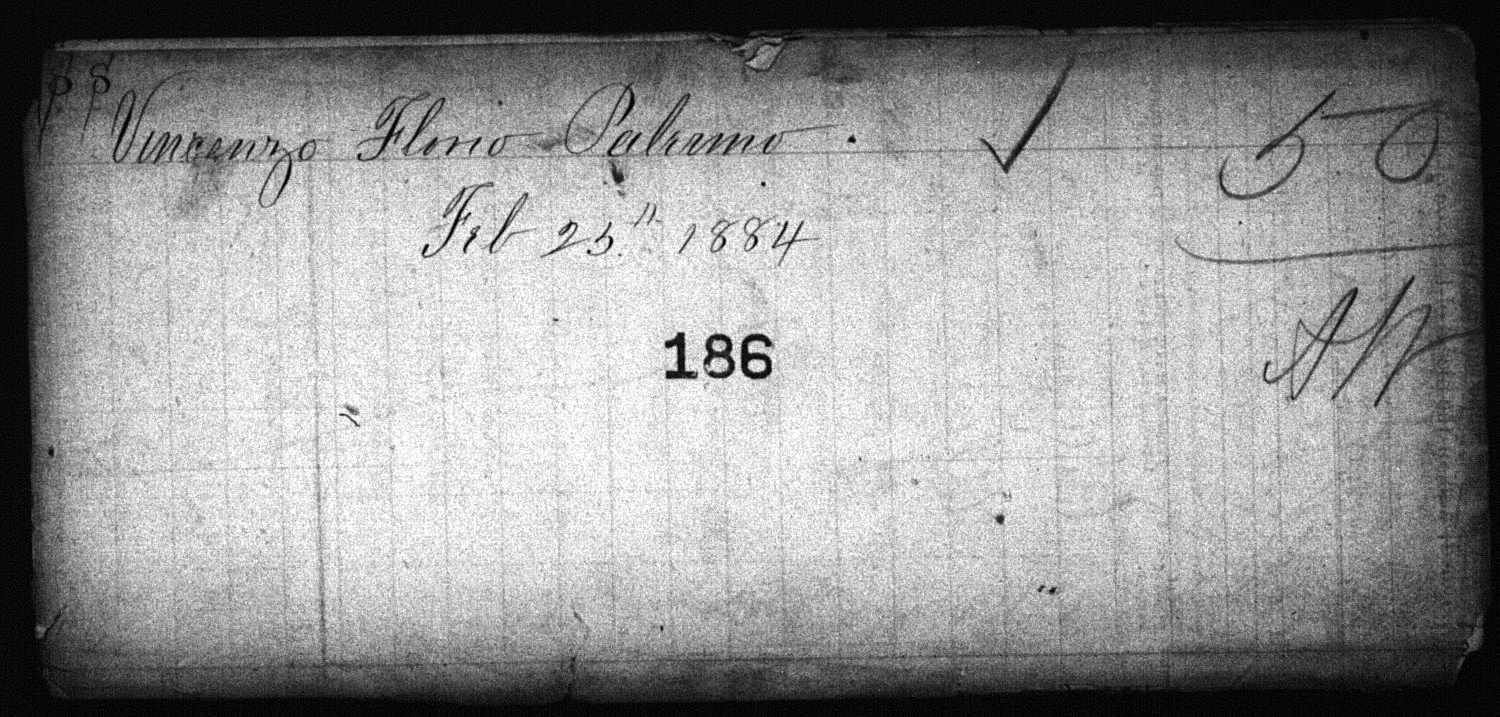 SS Vincenzo Florio Palermo. ✓ 50
Feb 25" 1884
186